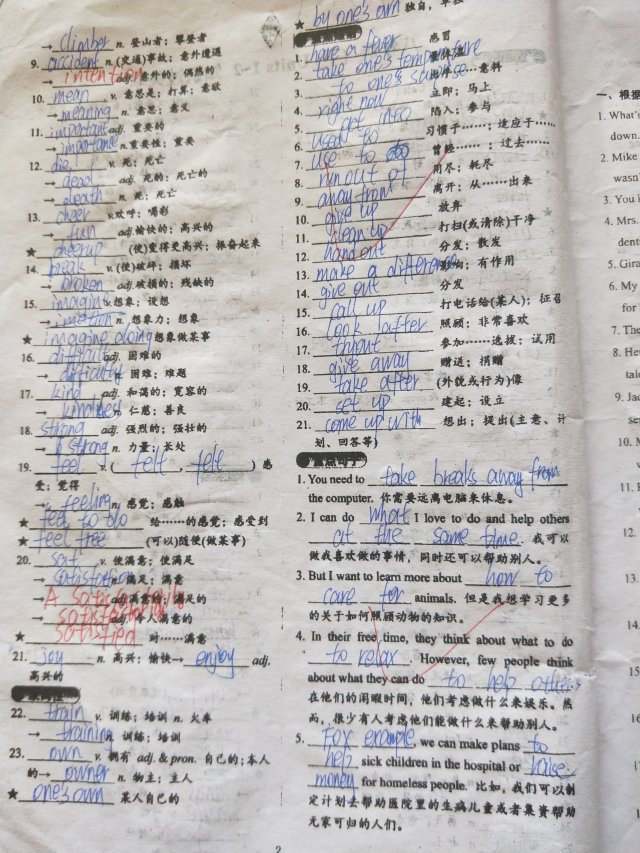 → climber n. 登山者；攀登者
9. accident n. (交通)事故；意外遭遇
→ intention 意外的；偶然的
10. mean v. 意思是；打算；意欲
→ meaning n. 意思；意义
11. important adj. 重要的
→ importance n. 重要性；重要
12. die v. 死；死亡
→ dead adj. 死的；死亡的
→ death n. 死；死亡
13. cheer v. 欢呼；喝彩
→ fun adj. 愉快的；高兴的
★ cheerup (使)变得更高兴；振奋起来
14. break v. (使)破碎；损坏
→ broken adj. 破损的；残缺的
15. imagin v. 想象；设想
→ n. 想象力；想象
★ imagine doing 想象做某事
16. difficult adj. 困难的
→ difficulty 困难；难题
17. kind adj. 和蔼的；宽容的
→ kindness n. 仁慈；善良
18. strong adj. 强烈的；强壮的
→ strong n. 力量；长处
19. feel v. ( felt , felt ) 感
受；觉得
→ feeling n. 感觉；感触
★ feel to do 给……的感觉；感受到
★ feel free (可以)随便(做某事)
20. sat v. 使满意；使满足
→ n. 满足；满意
→ adj. 满意的；满足的
→ 令人满意的
★ satisfied 对……满意
21. joy n. 高兴；愉快→ enjoy adj.
高兴的
22. train v. 训练；培训 n. 火车
→ training 训练；培训
23. own v. 拥有 adj. & pron. 自己的；本人
的→ owner n. 物主；主人
★ one's own 某人自己的
★ by one's own 独自，单独
1. have a fever 感冒
2. take one's temperature 量体温
3. to one's surprise 出乎……意料
4. right now 立即；马上
5. get into 陷入；参与
6. used to 习惯于……；适应于……
7. use to do 曾经……；过去……
8. run out of 用尽；耗尽
9. away from 离开；从……出来
10. give up 放弃
11. clean up 打扫(或清除)干净
12. hand out 分发；散发
13. make a difference 影响；有作用
14. give out 分发
15. call up 打电话给(某人)；征召
16. look after 照顾；非常喜欢
17. tryout 参加……选拔；试用
18. give away 赠送；捐赠
19. take after (外貌或行为)像
20. set up 建起；设立
21. come up with 想出；提出(主意、计
划、回答等)
重点句子
1. You need to take breaks away from
the computer. 你需要远离电脑来休息。
2. I can do what I love to do and help others
at the same time. 我可以
做我喜欢做的事情，同时还可以帮助别人。
3. But I want to learn more about how to
care for animals. 但是我想学习更多
的关于如何照顾动物的知识。
4. In their free time, they think about what to do
to relax. However, few people think
about what they can do to help others.
在他们的闲暇时间，他们考虑做什么来娱乐。然
而，很少有人考虑他们能做什么来帮助别人。
5. For example, we can make plans to
help sick children in the hospital or raise
money for homeless people. 比如，我们可以制
定计划去帮助医院里的生病儿童或者集资帮助
无家可归的人们。
2
一、根据
1. What's
down.
2. Mike
wasn'
3. You
4. Mrs.
dent
5. Gira
6. My
for
7. The
8. He
tal
9. Ja
se
10.
11.
12.
13.
14.
15